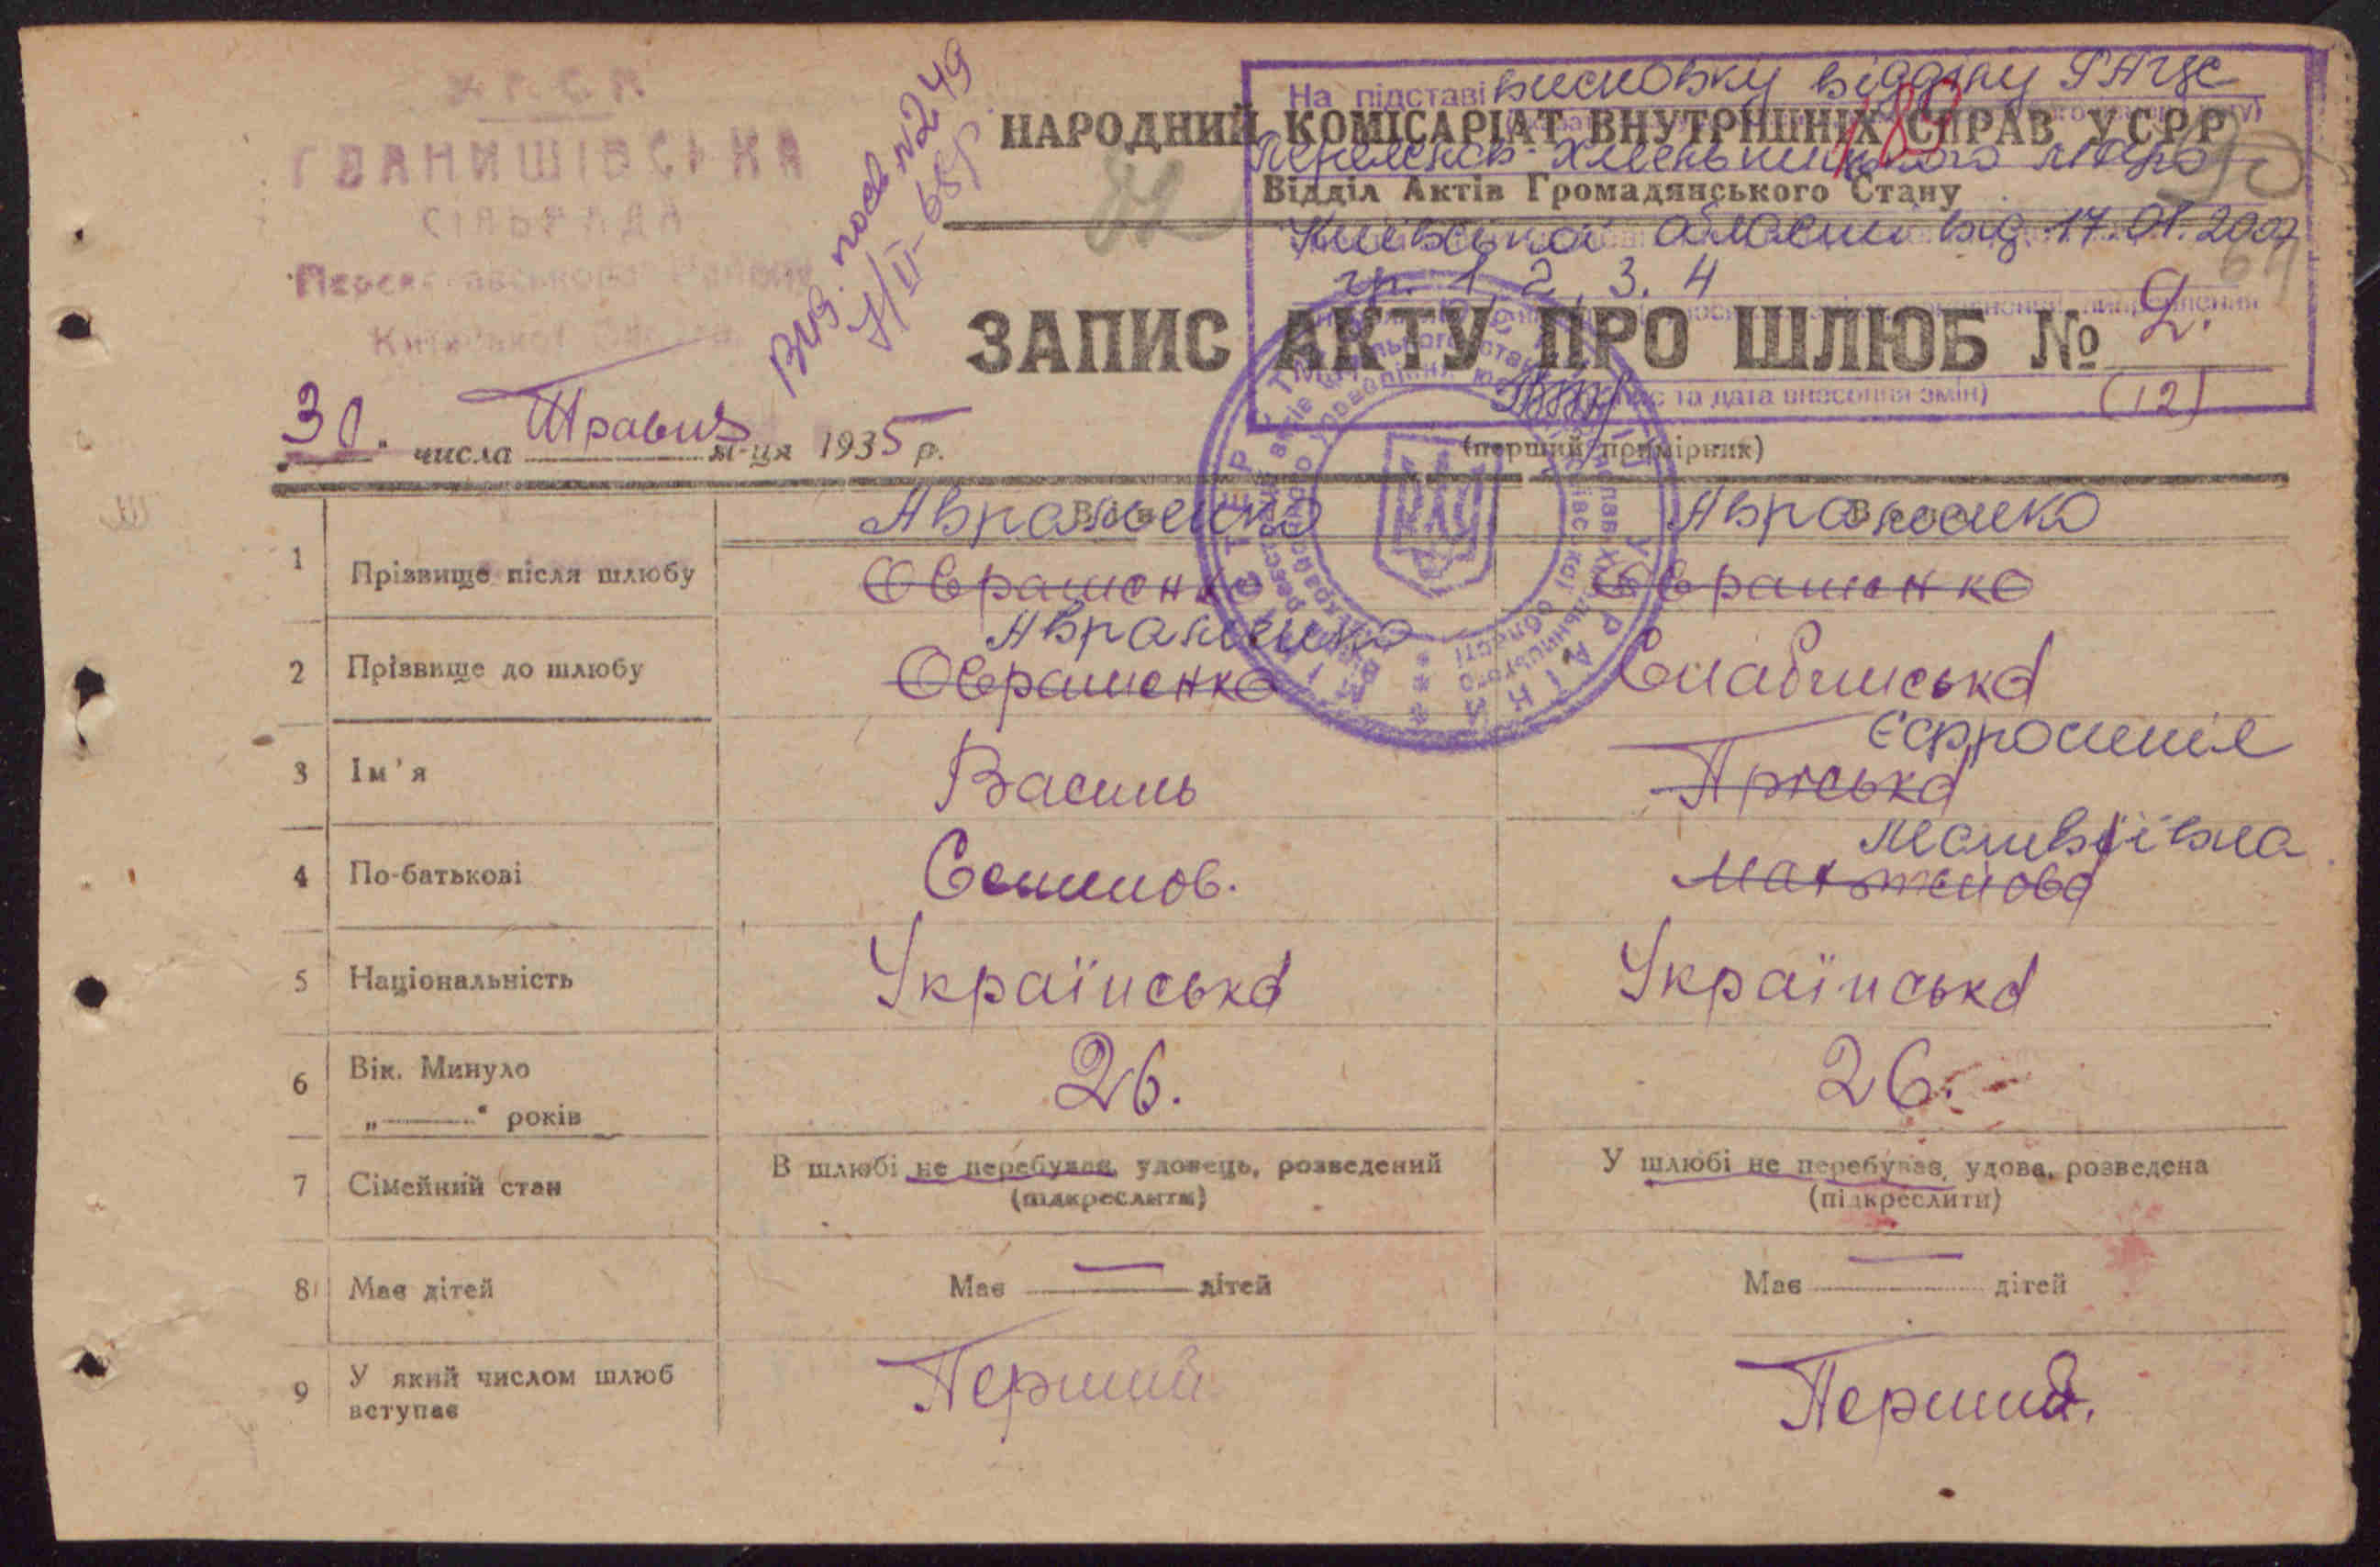 УРСР
ГЛАНИШІВСЬКА
СІЛЬРАДА
Переяславського Району
Київської
Вид. посв №249
7/II-68р.
На підставі висновку відділу РАЦС
НАРОДНИЙ КОМІСАРІАТ ВНУТРІШНІХ СПРАВ УСРР
189
Переяслав-Хмельницького МРУЮ
Відділ Актів Громадянського Стану
Київської області від 17.01.2002
гр. 1, 2, 3, 4
ЗАПИС АКТУ ПРО ШЛЮБ № 2.
(12)
та дата внесення змін)
(перший примірник)
„30." числа Травня м-ця 1935 р.
Авраменко Авраменко
1 Прізвище після шлюбу Оврашенко Оврашенко
Авраменко
2 Прізвище до шлюбу Оврашенко Слабинська
Єфросинія
3 Ім'я Василь Пріська
Матвіївна
4 По-батькові Семинов.
5 Національність Українська Українська
6 Вік. Минуло 26. 26.
„——" років
7 Сімейний стан В шлюбі не перебував, удовець, розведений У шлюбі не перебував, удова, розведена
(підкреслити) (підкреслити)
8 Має дітей Має — дітей Має — дітей
9 У який числом шлюб Перший Перший.
вступає